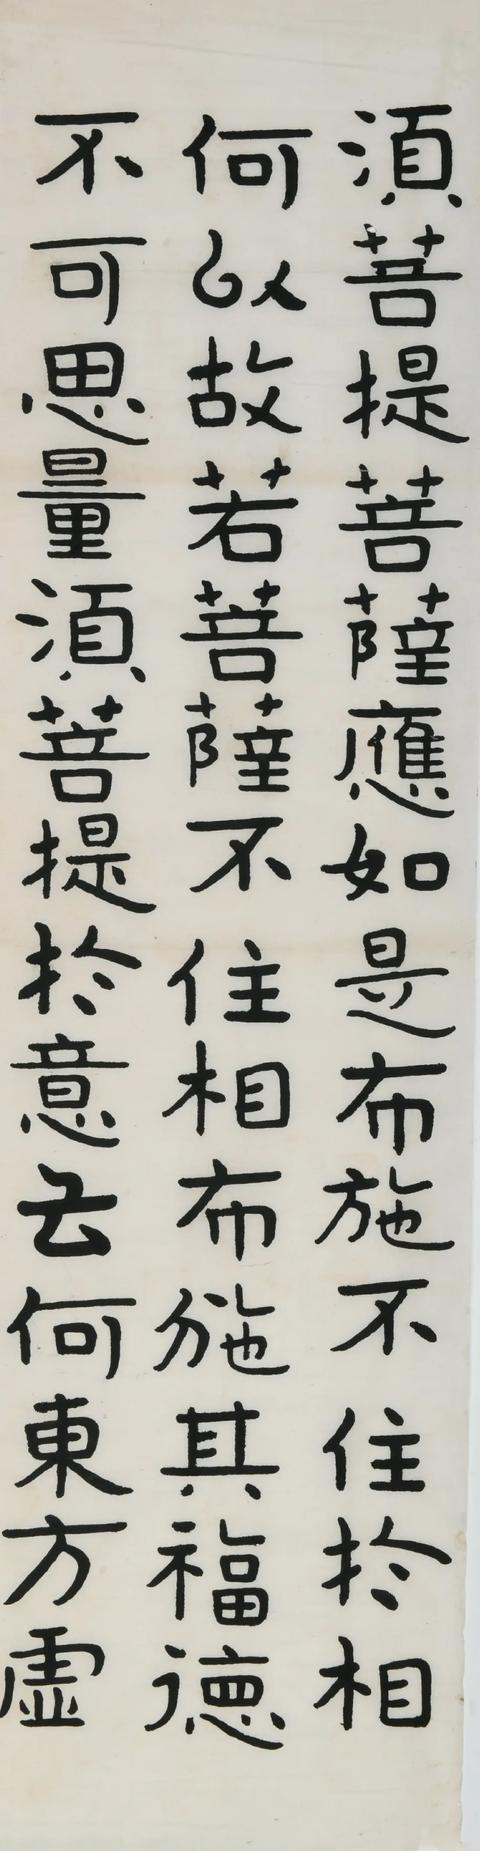 湏菩提菩薩應如是布施不住於相
何以故若菩薩不住相布施其福德
不可思量湏菩提於意云何東方虛